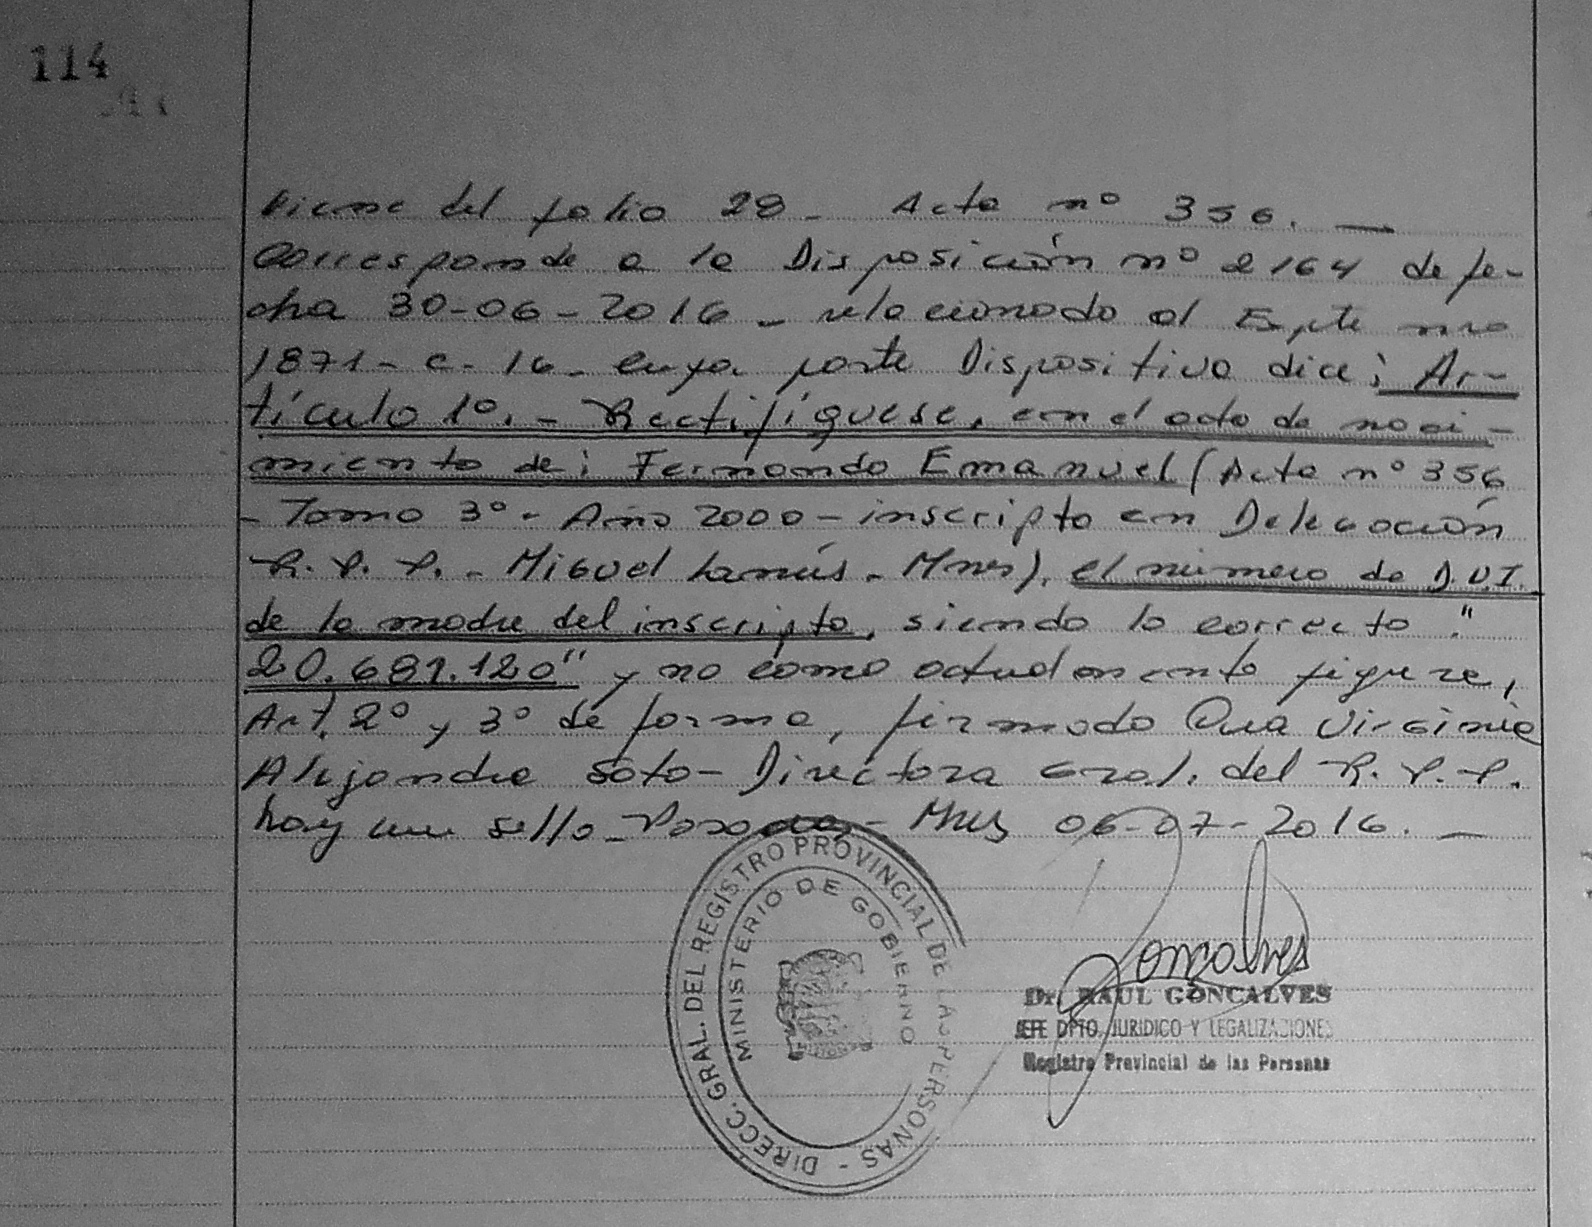 114
Viene del folio 28 - Acta nº 356. —
Corresponde a la Disposición nº 2164 de fe-
cha 30-06-2016 - relacionado al Expte nro
1871-C-16- cuya parte Dispositiva dice: Ar-
tículo 1º. - Rectifíquese, en el acta de naci-
miento de: Fernando Emanuel (Acta nº 356
- Tomo 3º - Año 2000 - inscripto en Delegación
R.P.P. - Miguel Lanús - Mnes), el número de D.N.I.
de la madre del inscripto, siendo lo correcto "
20.681.120" y no como actualmente figura,
Art. 2º y 3º de forma, firmado Dra Virginia
Alejandra Soto - Directora Gral. del R.P.P.
hay un sello - Posadas - Mnes 06-07-2016. —
DIRECC. GRAL. DEL REGISTRO PROVINCIAL DE LAS PERSONAS -
MINISTERIO DE GOBIERNO
Goncalves
Dr. RAUL GONCALVES
JEFE DPTO. JURIDICO Y LEGALIZACIONES
Registro Provincial de las Personas